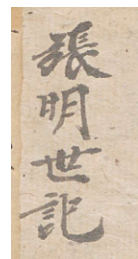 張明世記